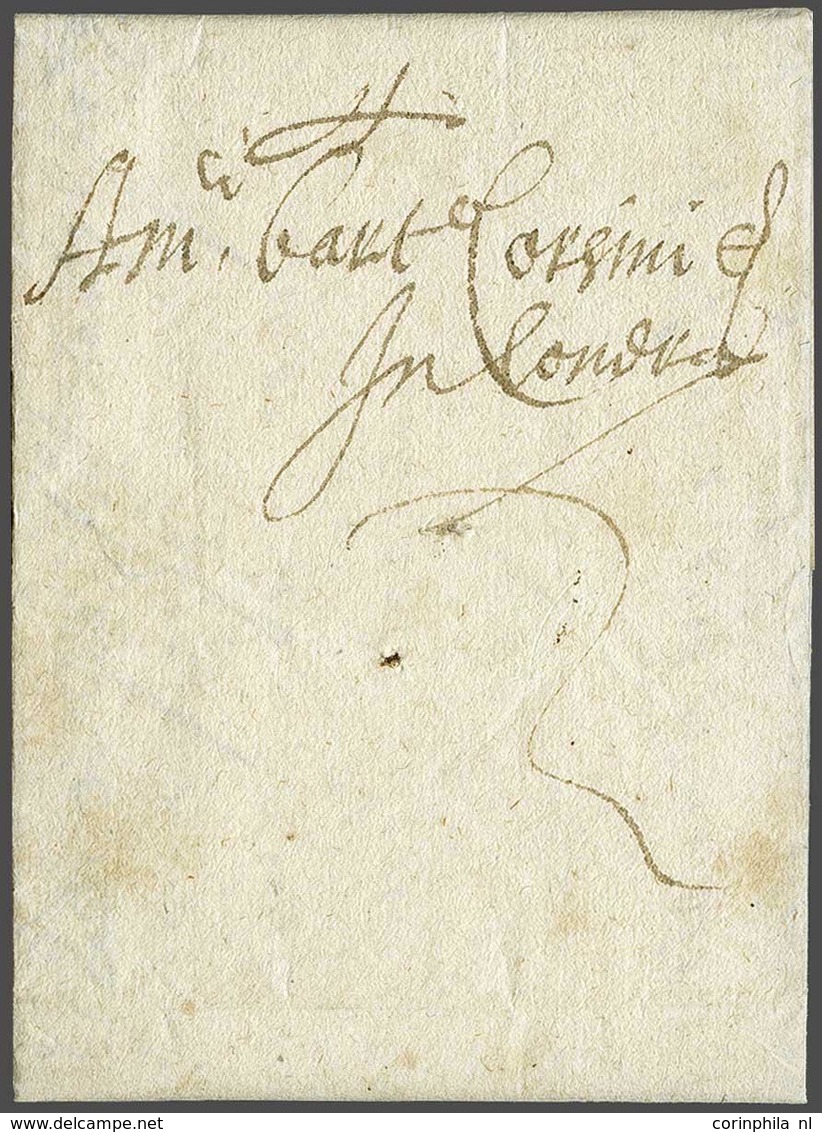 Am.ci Bart.o Corsini &
In Londra
www.delcampe.net
corinphila nl